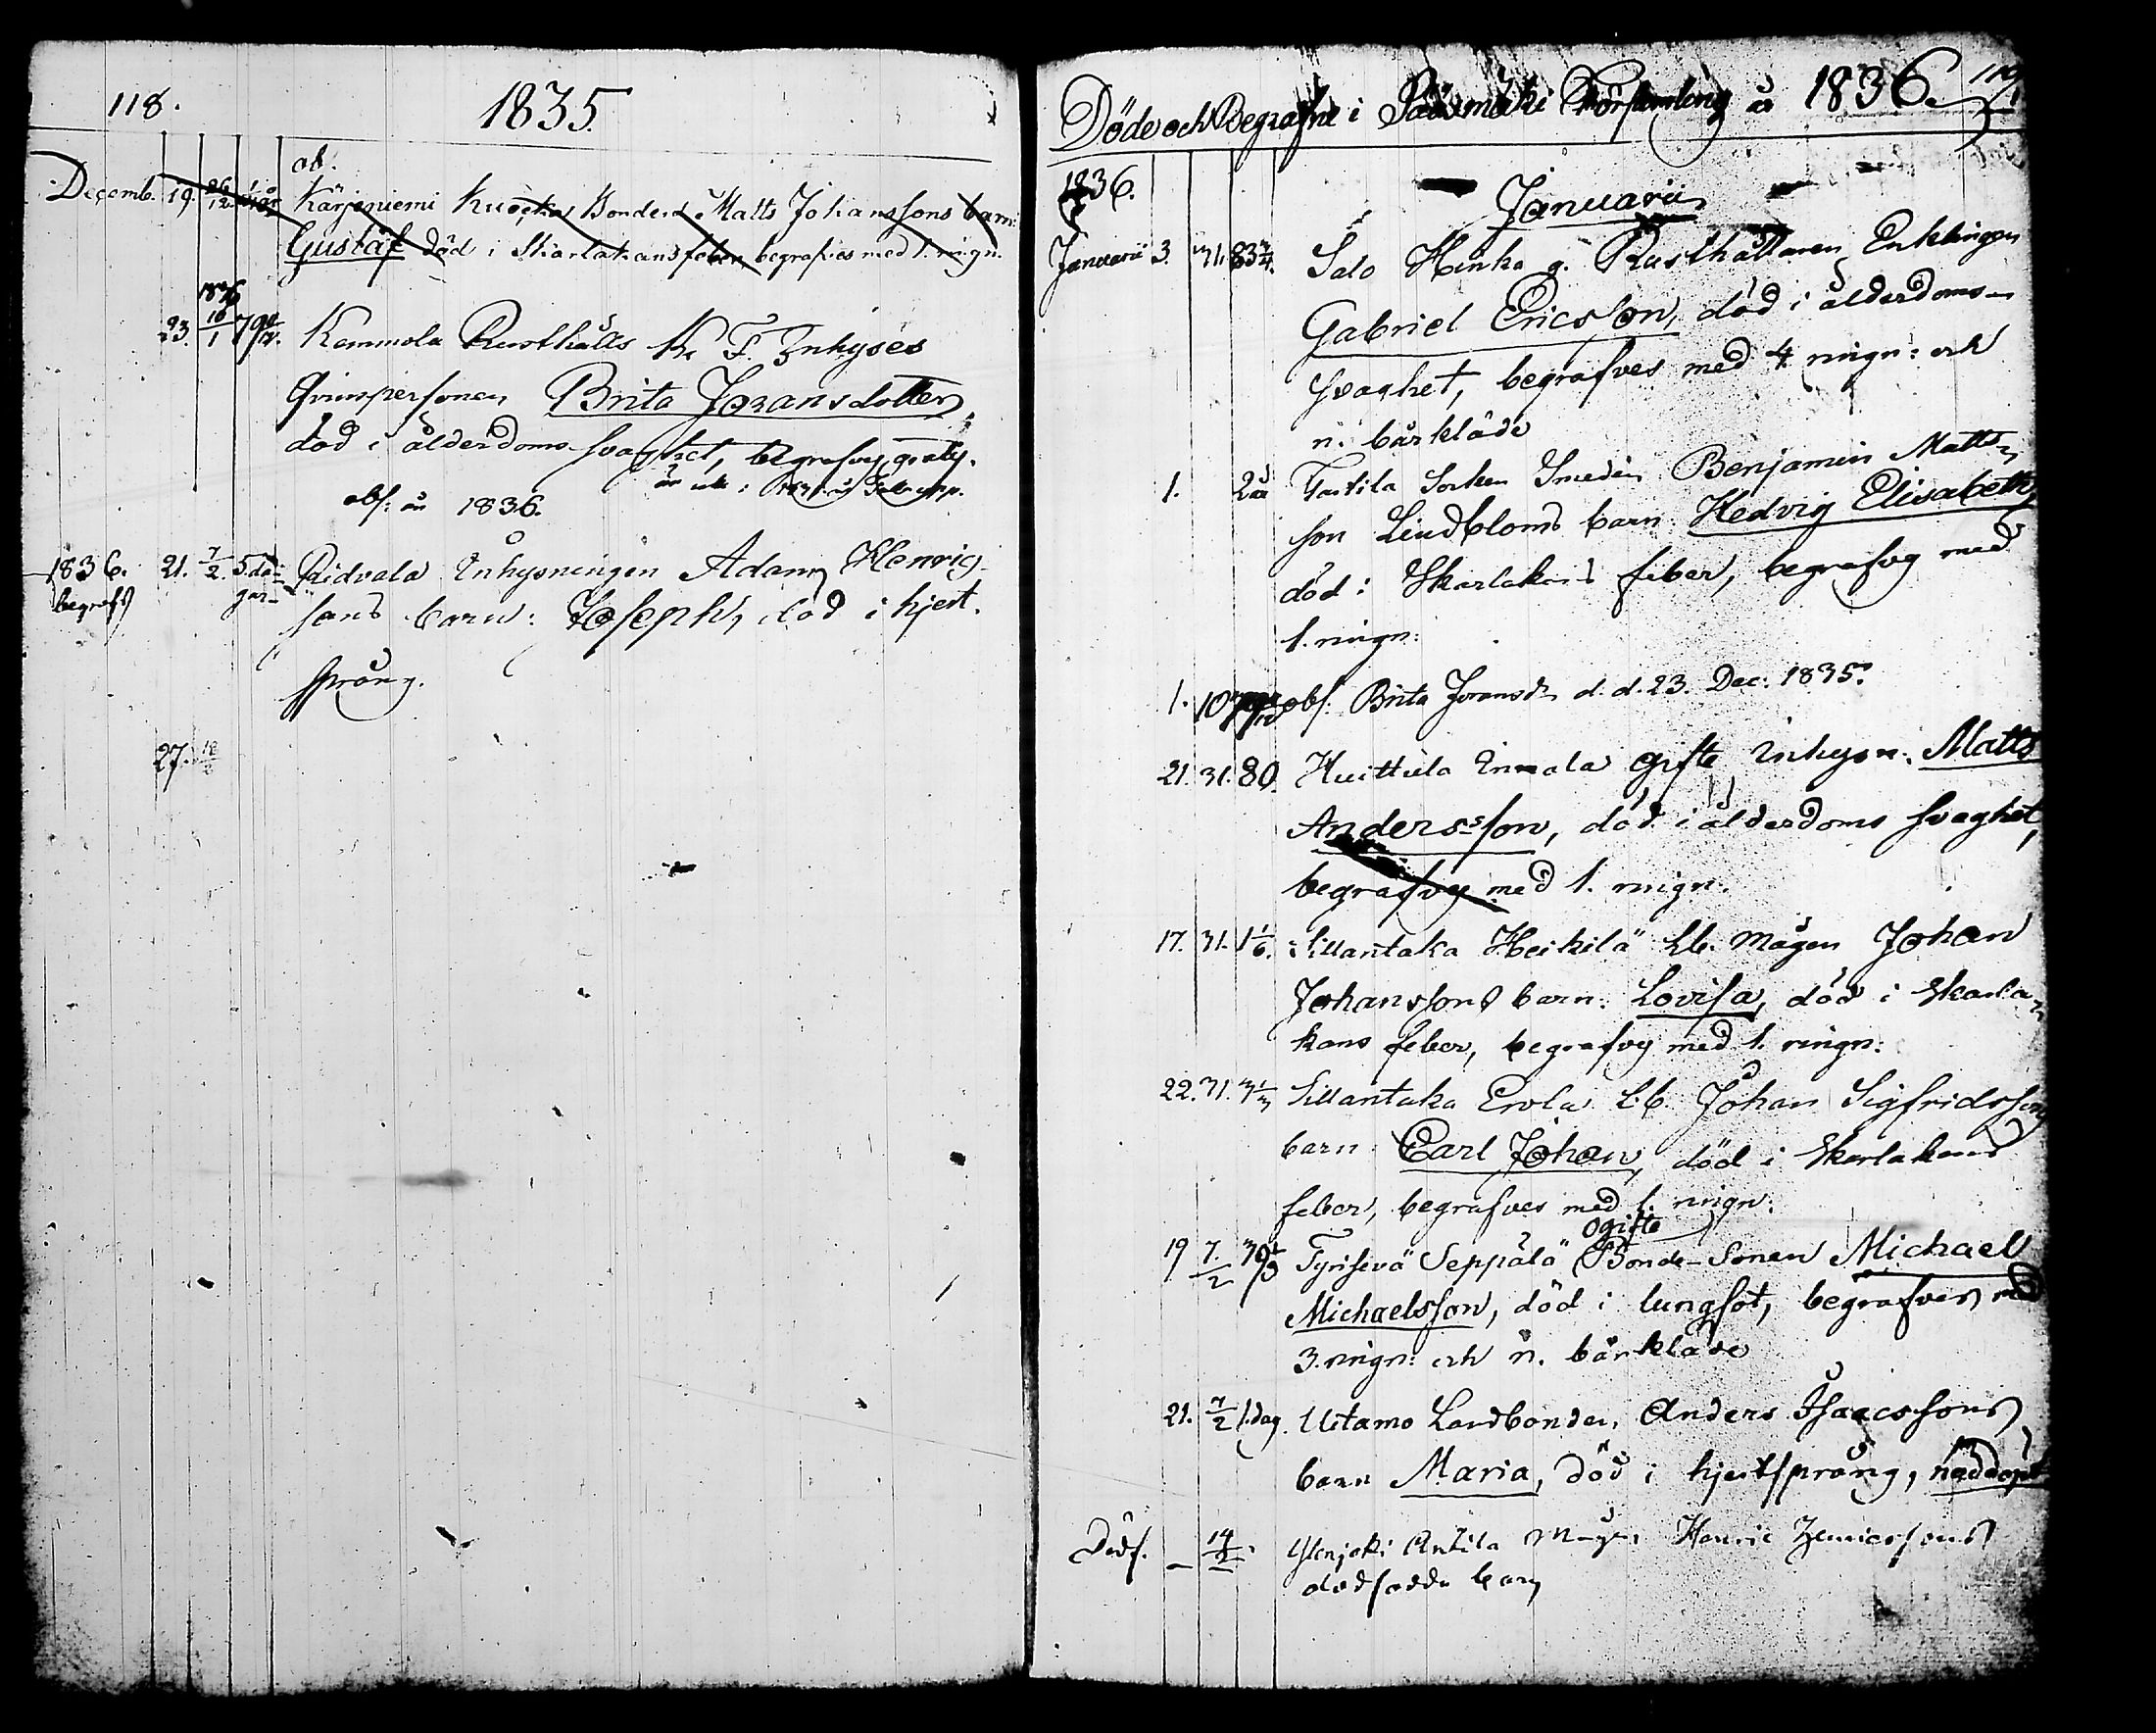 118.
1835.
ob.
Decemb. 19. 26/12 Kärjeniemi Kuocka Bonden Matts Johanssons barn
Gustaf död i Skarlakansfeber, begrafves med 1. ringn.
1836
23. 16/1 Kemmola Rusthålls Inhyses
qvinspersonen Brita Joransdotter,
död i ålderdoms svaghet, begrafves gratis.
obs: år 1836.
1836. 21. 7/2 5. da-
begrafs gar Ridvala Inhysningen Adam Henrig-
sons barn: Joseph, död i hjert-
språng.
27. 12/2
Döde och Begrafne i Sääxmäki Församling år 1836. 119
1836.
Januarii
Januarii 3. 31. 83 3/4. Salo Heinka g. Rusthållaren Enklingen
Gabriel Ericsson, död i ålderdoms-
svaghet, begrafves med 4 ringn: och
n. bårkläde
1. 2 år Tarttila Socken Smeden Benjamin Matts-
son Lindbloms barn Hedvig Elisabeth,
död i Skarlakans feber, begrafves med
1. ringn:
1. 10 obs. Brita Joransdr d. d. 23. Dec. 1835.
21. 31. 80. Huittula Inmala gifte Inhysn. Matts
Andersson, död i ålderdoms svaghet,
begrafves med 1. ringn.
17. 31. 1 1/6. Sillantaka Heikilä Lb. Mågen Johan
Johanssons barn: Lovisa, död i Skarla-
kans feber, begrafves med 1. ringn:
22. 31. 3 1/3 Sillantaka Erola Lb. Johan Sigfridssons
barn Carl Johan, död i Skarlakans
feber, begrafves med 1. ringn.
ogifte
19 7/2 Tyrisevä Seppälä Bonde-Sonen Michael
Michaelsson, död i lungsot, begrafves med
3. ringn: och n. bårkläde
21. 7/2 1. dag. Uitamo Landbonden, Anders Isaacssons
barn Maria, död i hjertsprång, nöddöpt
Dödf. - 14/2 Ylenjoki Antila Mågen Henric Henricssons
dödfödda barn